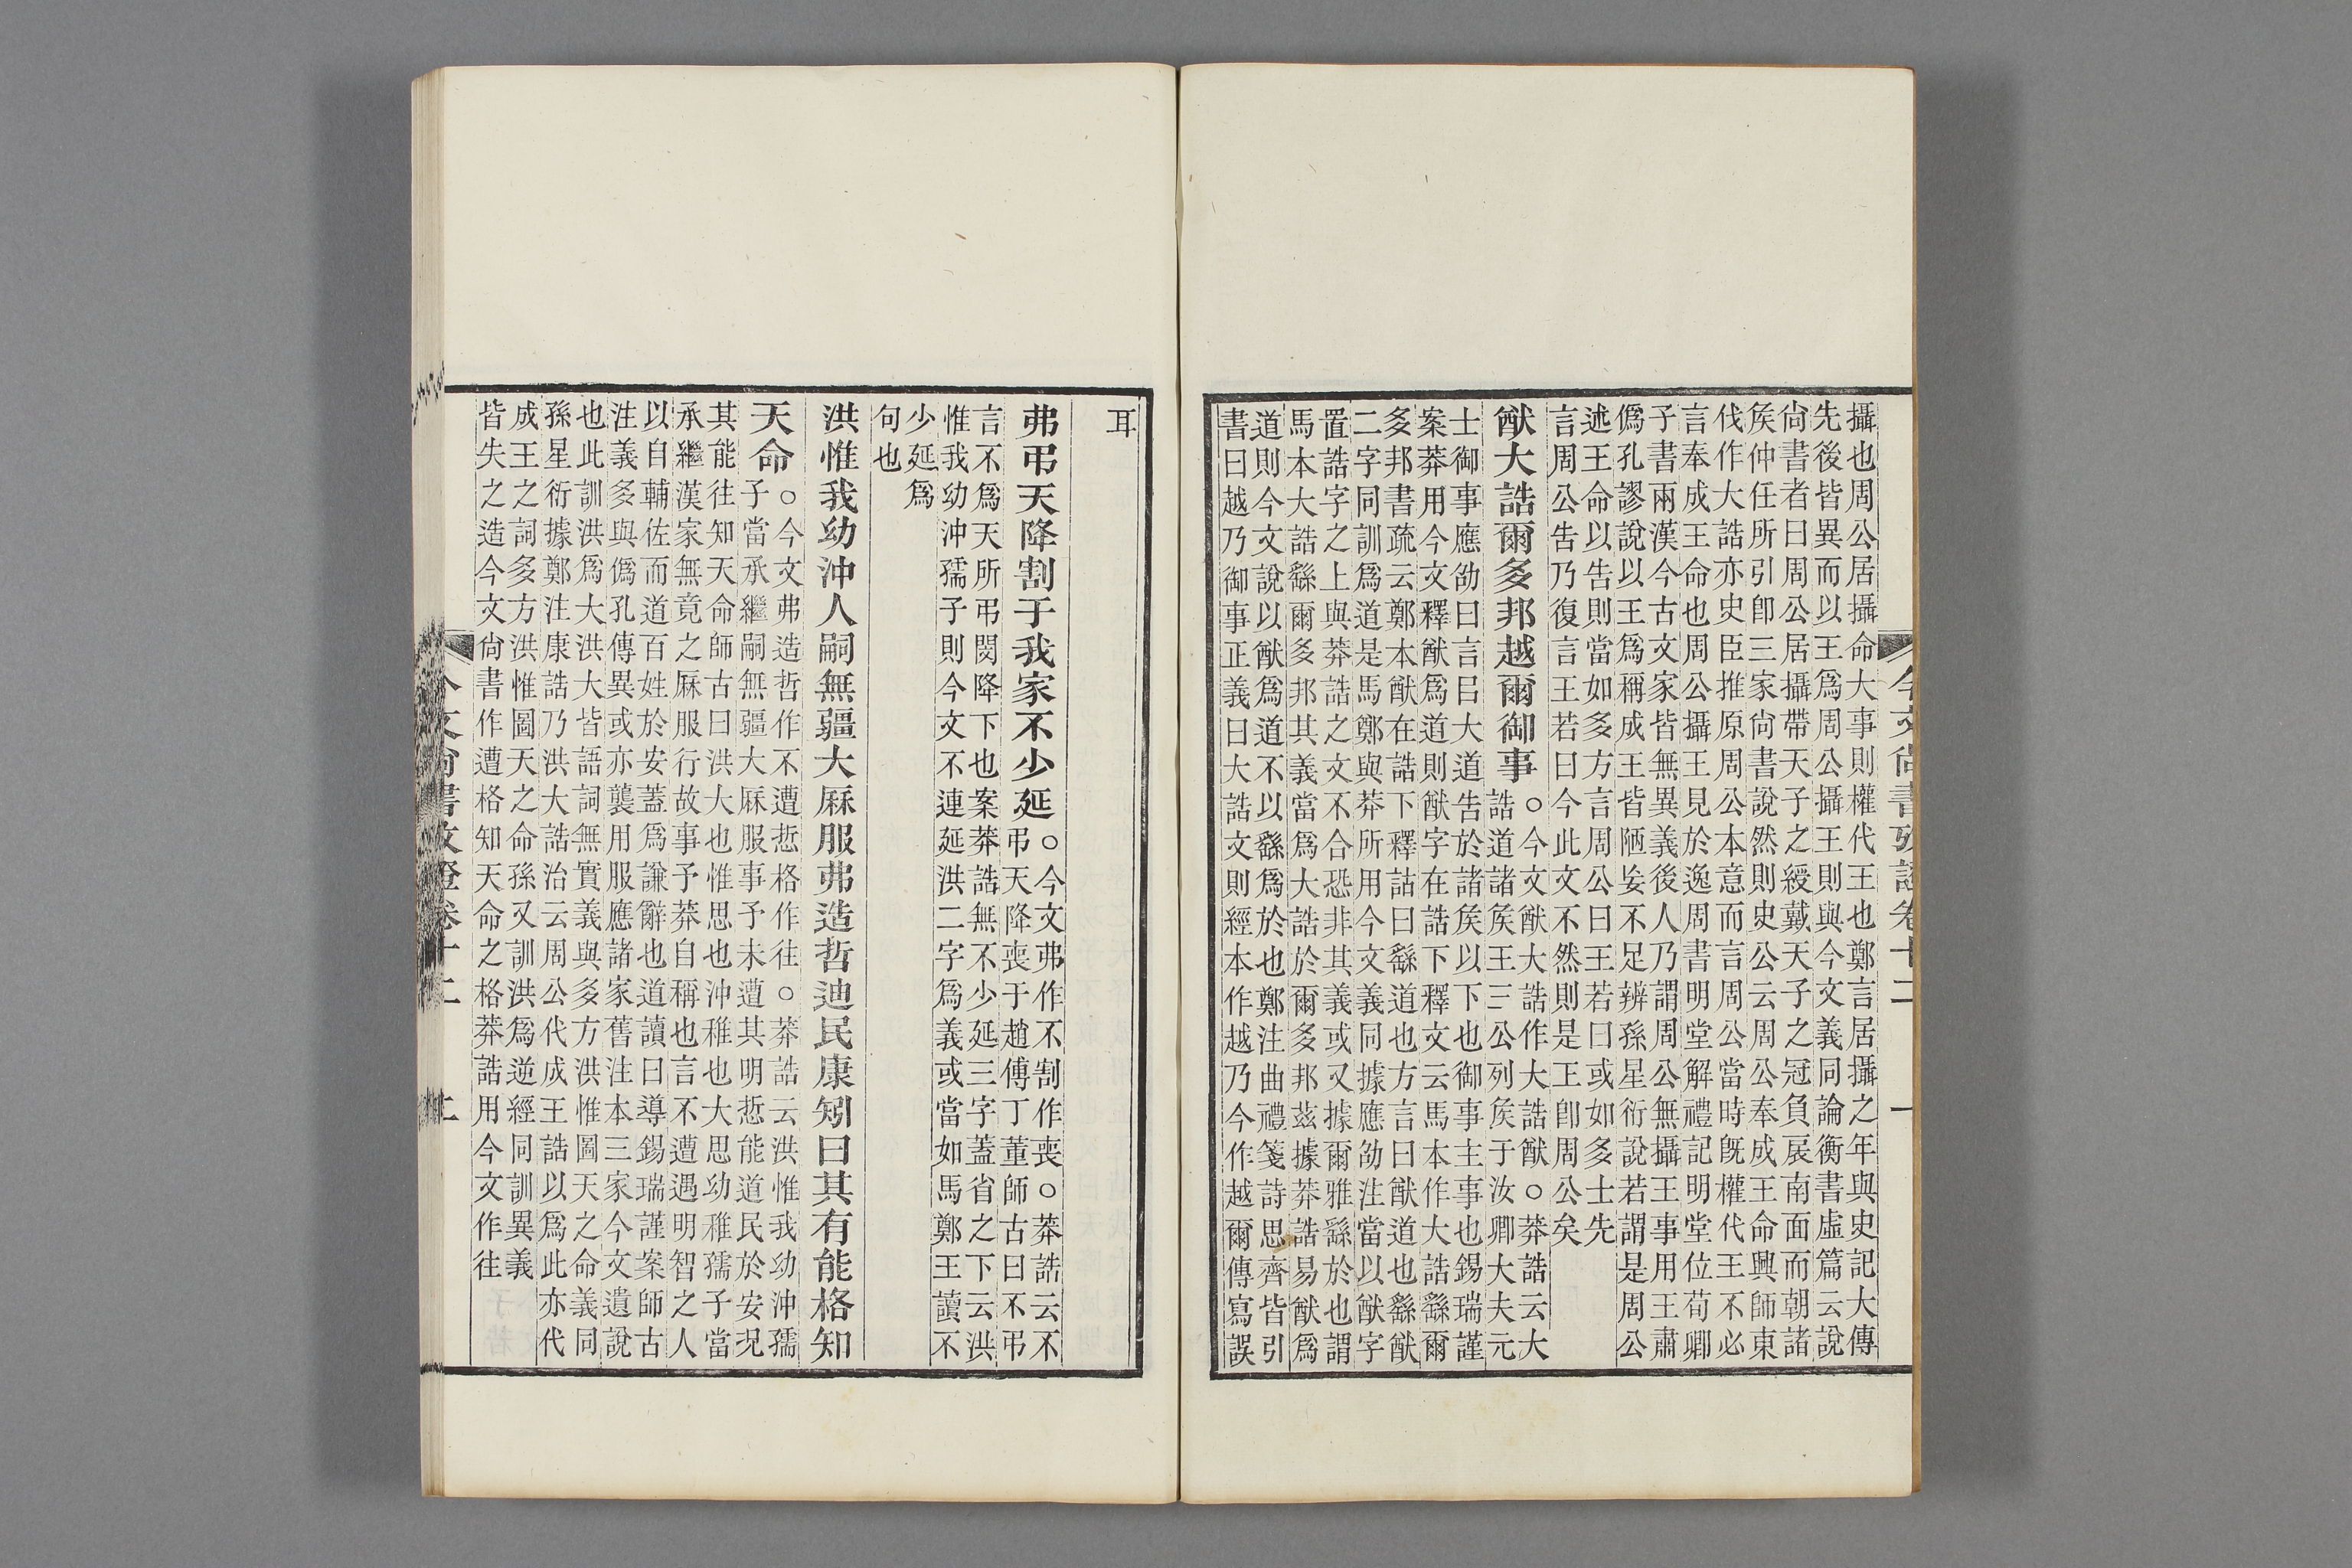 攝也周公居攝命大事則權代王也鄭言居攝之年與史記大傳
先後皆異而以王爲周公攝王則與今文義同論衡書虛篇云說
尙書者曰周公居攝帶天子之綬戴天子之冠負扆南面而朝諸
矦仲任所引卽三家尙書說然則史公云周公奉成王命興師東
伐作大誥亦史臣推原周公本意而言周公當時旣權代王不必
言奉成王命也周公攝王見於逸周書明堂解禮記明堂位荀卿
子書兩漢今古文家皆無異義後人乃謂周公無攝王事用王肅
僞孔謬說以王爲稱成王皆陋妄不足辨孫星衍說若謂是周公
述王命以吿則當如多方言周公曰王若曰或如多士先
言周公吿乃復言王若曰今此文不然則是王卽周公矣
猷大誥爾多邦越爾御事
○今文猷大誥作大誥猷○莽誥云大
誥道諸矦王三公列矦于汝卿大夫元
士御事應劭曰言㠯大道吿於諸矦以下也御事主事也錫瑞謹
案莽用今文釋猷爲道則猷字在誥下釋文云馬本作大誥繇爾
多邦書疏云鄭本猷在誥下釋詁曰繇道也方言曰猷道也繇猷
二字同訓爲道是馬鄭與莽所用今文義同據應劭注當以猷字
置誥字之上與莽誥之文不合恐非其義或又據爾雅繇於也謂
馬本大誥繇爾多邦其義當爲大誥於爾多邦茲據莽誥易猷爲
道則今文說以猷爲道不以繇爲於也鄭注曲禮箋詩思齊皆引
書曰越乃御事正義曰大誥文則經本作越乃今作越爾傳寫誤
今文尙書攷證卷十二
一
耳
弗弔天降割于我家不少延
○今文弗作不割作喪○莽誥云不
弔天降喪于趙傅丁董師古曰不弔
言不爲天所弔閔降下也案莽誥無不少延三字蓋省之下云洪
惟我幼沖孺子則今文不連延洪二字爲義或當如馬鄭王讀不
少延爲
句也
洪惟我幼沖人嗣無疆大厤服弗造哲迪民康矧曰其有能格知
天命
○今文弗造哲作不遭悊格作往○莽誥云洪惟我幼沖孺
子當承繼嗣無疆大厤服事予未遭其明悊能道民於安況
其能往知天命師古曰洪大也惟思也沖稚也大思幼稚孺子當
承繼漢家無竟之厤服行故事予莽自稱也言不遭遇明智之人
以自輔佐而道百姓於安蓋爲謙辭也道讀曰導錫瑞謹案師古
注義多與僞孔傳異或亦襲用服應諸家舊注本三家今文遺說
也此訓洪爲大洪大皆語詞無實義與多方洪惟圖天之命義同
孫星衍據鄭注康誥乃洪大誥治云周公代成王誥以爲此亦代
成王之詞多方洪惟圖天之命孫又訓洪爲逆經同訓異義
皆失之造今文尙書作遭格知天命之格莽誥用今文作往